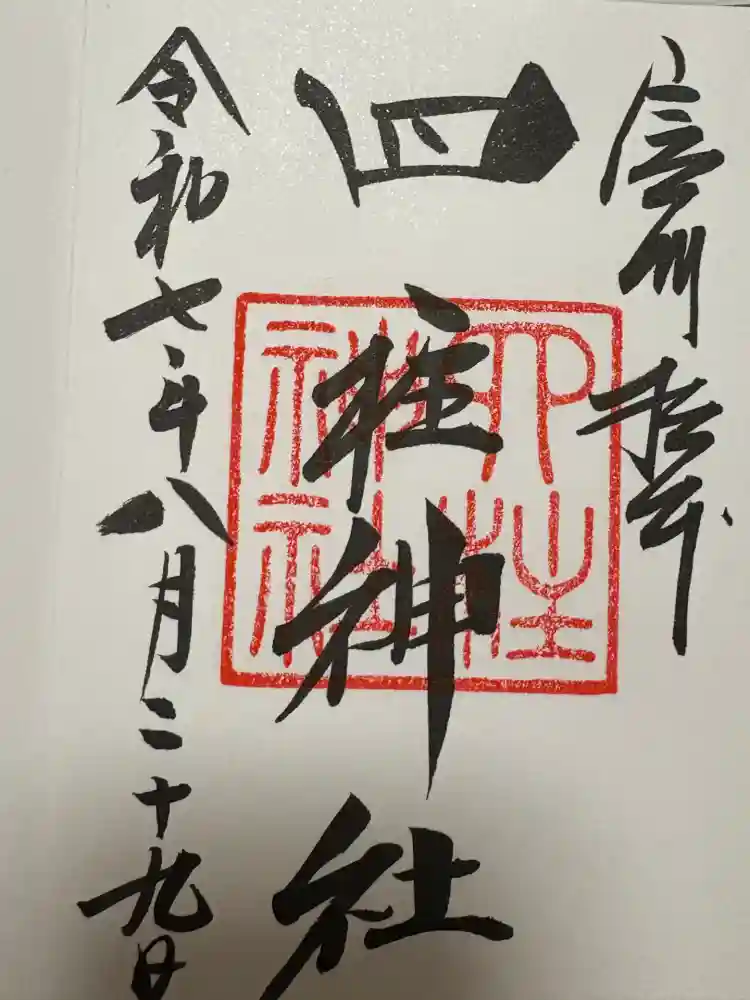 信州 松本
四柱神社
四柱神社
令和七年八月二十九日